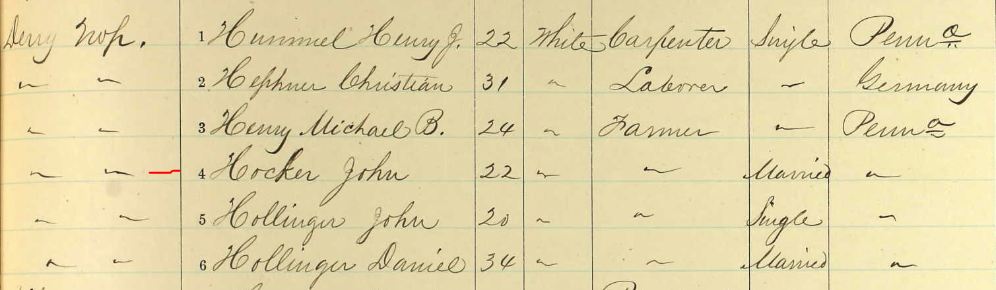 Derry Twp. 1 Hummel Henry J. 22 White Carpenter Single Penna
" " 2 Hephner Christian 31 " Laborer " Germany
" " 3 Henry Michael B. 24 " Farmer " Penna
" " 4 Hocker John 22 " " Married "
" " 5 Hollinger John 20 " " Single "
" " 6 Hollinger Daniel 34 " " Married "